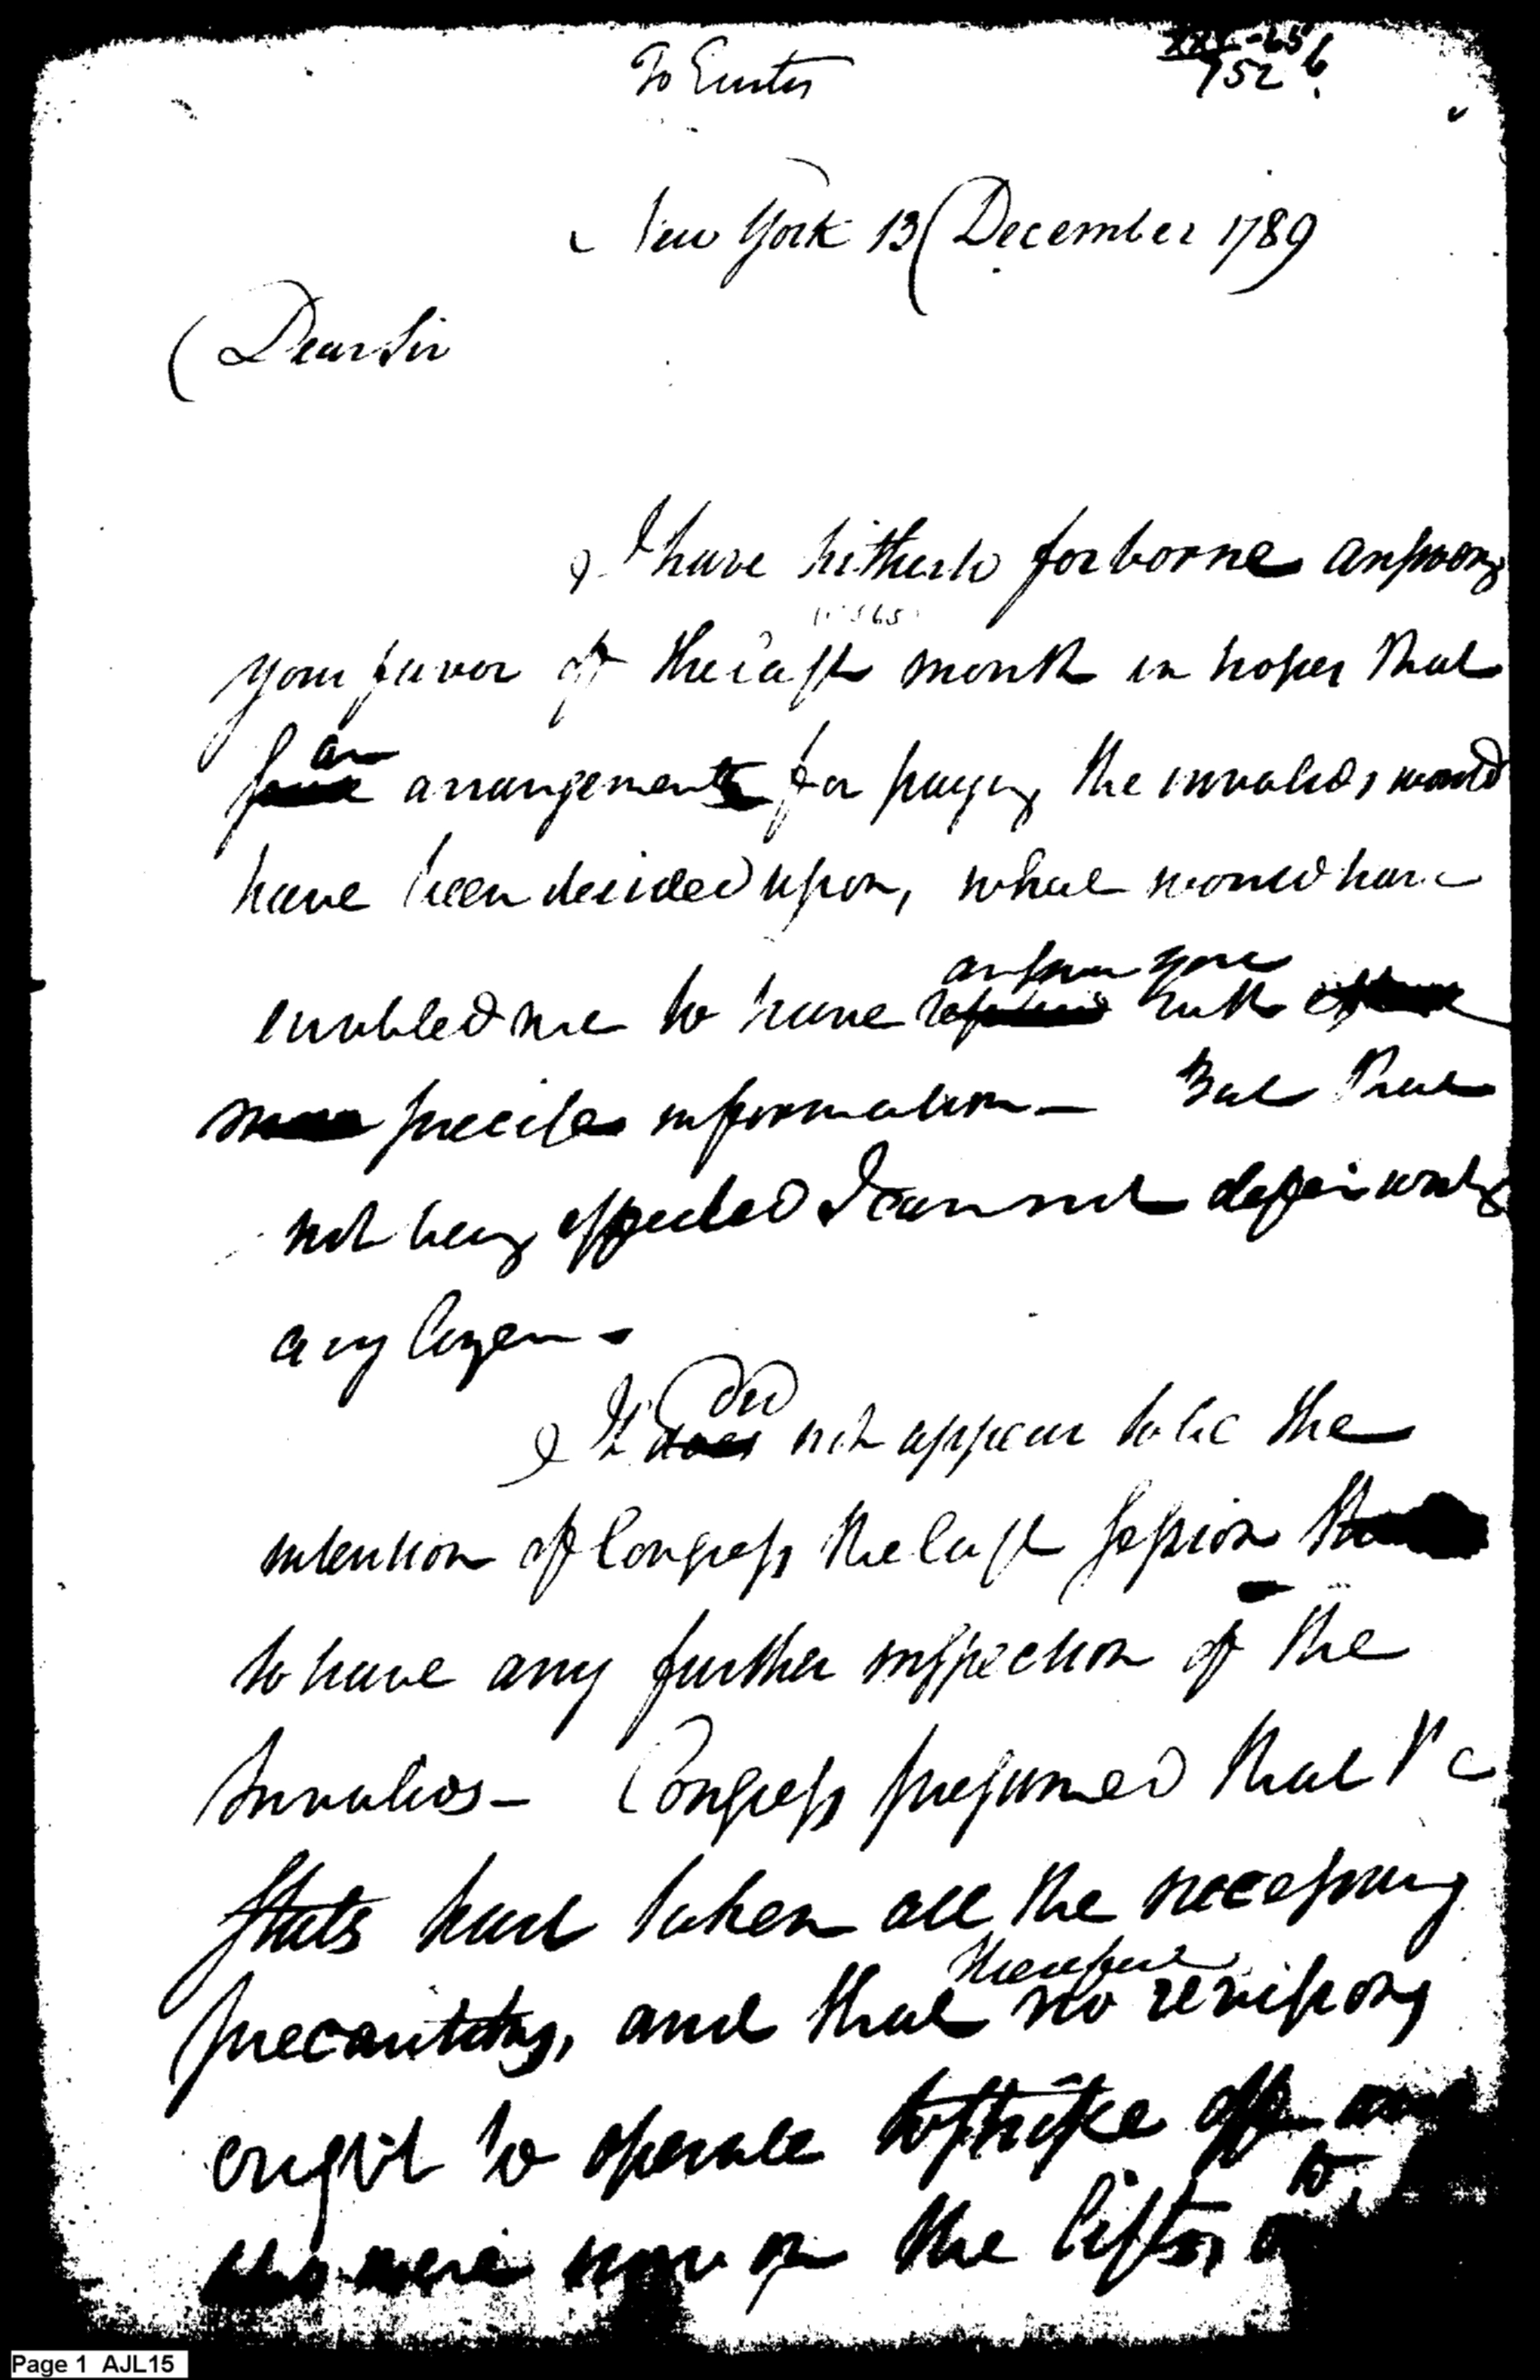 To Eustis
XXV-65
752 6
New York 13 December 1789
Dear Sir
I have hitherto forborne answering
your favor of the last month in hopes that
an
some arrangements for paying the invalids would
have been decided upon, what would have
answered you
enabled me to have replied with
more precise information — But that
not being effected I cannot defer writing
any longer —
did
It does not appear to be the
intention of Congress the last session that
to have any further inspection of the
Invalids — Congress presumed that the
States had taken all the necessary
therefore
precautions, and that no revisions
ought to operate to strike off
to
who were now on the lists,
Page 1 AJL15